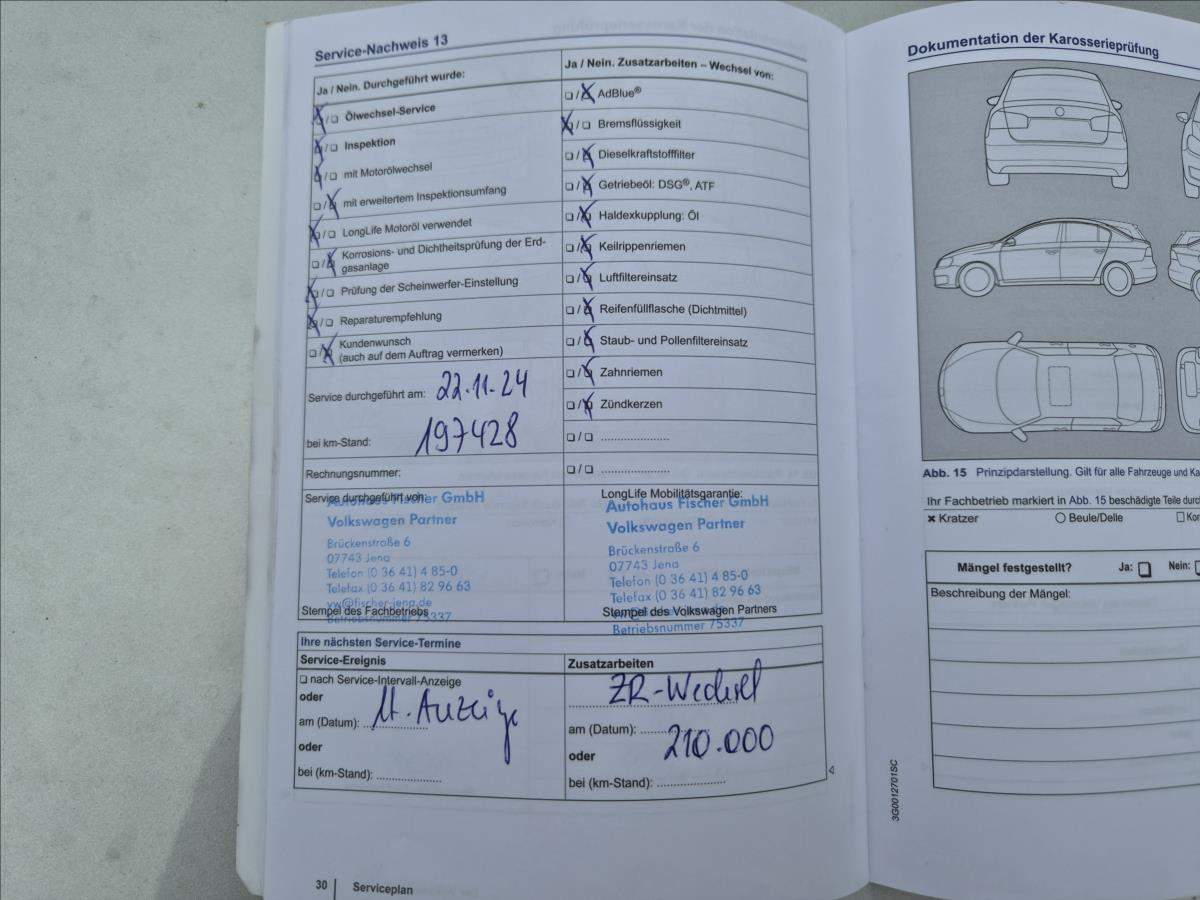 Service-Nachweis 13
Ja / Nein. Durchgeführt wurde:
❑ / ❑ Ölwechsel-Service
❑ / ❑ Inspektion
❑ / ❑ mit Motorölwechsel
❑ / ❑ mit erweitertem Inspektionsumfang
❑ / ❑ LongLife Motoröl verwendet
❑ / ❑ Korrosions- und Dichtheitsprüfung der Erd-
gasanlage
❑ / ❑ Prüfung der Scheinwerfer-Einstellung
❑ / ❑ Reparaturempfehlung
❑ / ❑ Kundenwunsch
(auch auf dem Auftrag vermerken)
Service durchgeführt am: 22.11.24
bei km-Stand: 197428
Rechnungsnummer:
Service durchgeführt von:
Autohaus Fischer GmbH
Volkswagen Partner
Brückenstraße 6
07743 Jena
Telefon (0 36 41) 4 85-0
Telefax (0 36 41) 82 96 63
vw@fischer-jena.de
Stempel des Fachbetriebs
Betriebsnummer 75337
Ja / Nein. Zusatzarbeiten – Wechsel von:
❑ / ❑ AdBlue®
❑ / ❑ Bremsflüssigkeit
❑ / ❑ Dieselkraftstofffilter
❑ / ❑ Getriebeöl: DSG®, ATF
❑ / ❑ Haldexkupplung: Öl
❑ / ❑ Keilrippenriemen
❑ / ❑ Luftfiltereinsatz
❑ / ❑ Reifenfüllflasche (Dichtmittel)
❑ / ❑ Staub- und Pollenfiltereinsatz
❑ / ❑ Zahnriemen
❑ / ❑ Zündkerzen
❑ / ❑ ....................
❑ / ❑ ....................
LongLife Mobilitätsgarantie:
Autohaus Fischer GmbH
Volkswagen Partner
Brückenstraße 6
07743 Jena
Telefon (0 36 41) 4 85-0
Telefax (0 36 41) 82 96 63
Stempel des Volkswagen Partners
Betriebsnummer 75337
Ihre nächsten Service-Termine
Service-Ereignis
❑ nach Service-Intervall-Anzeige
oder
lt. Anzeige
am (Datum): ....................
oder
bei (km-Stand): ....................
Zusatzarbeiten
ZR-Wechsel
am (Datum): ....................
210.000
oder
bei (km-Stand): ....................
30 Serviceplan
Dokumentation der Karosserieprüfung
Abb. 15 Prinzipdarstellung. Gilt für alle Fahrzeuge und Ka
Ihr Fachbetrieb markiert in Abb. 15 beschädigte Teile durc
✖ Kratzer
○ Beule/Delle
Mängel festgestellt? Ja: ❑ Nein:
Beschreibung der Mängel:
3G0012701SC